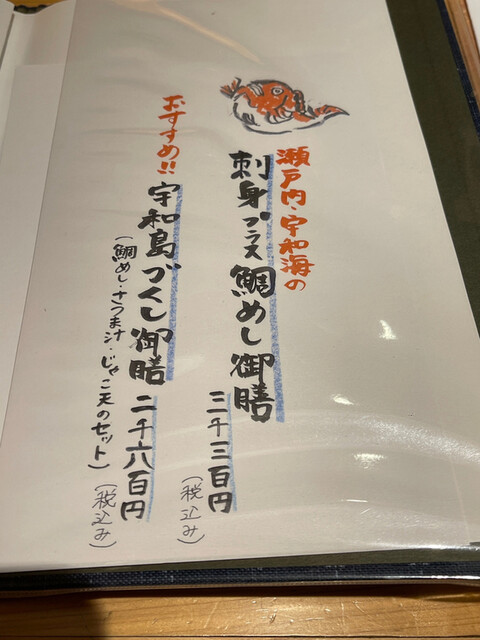 瀬戸内・宇和海の
刺身プラス鯛めし御膳
三千三百円
(税込み)
おすすめ!!
宇和島づくし御膳
二千六百円
(鯛めし・さつま汁・じゃこ天のセット)
(税込み)